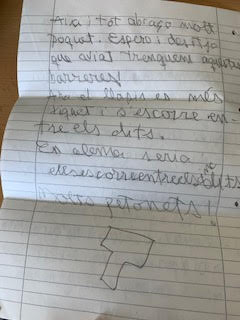 Ana i tot abraço molt
poquet. Espero i desitjo
que aviat trenquem aquestes
barreres!
Ara el llapis es més
xiquet i s'escorre en-
tre els dits.
En alemà seria
elsescorreentreelsdits
Molts petonets!